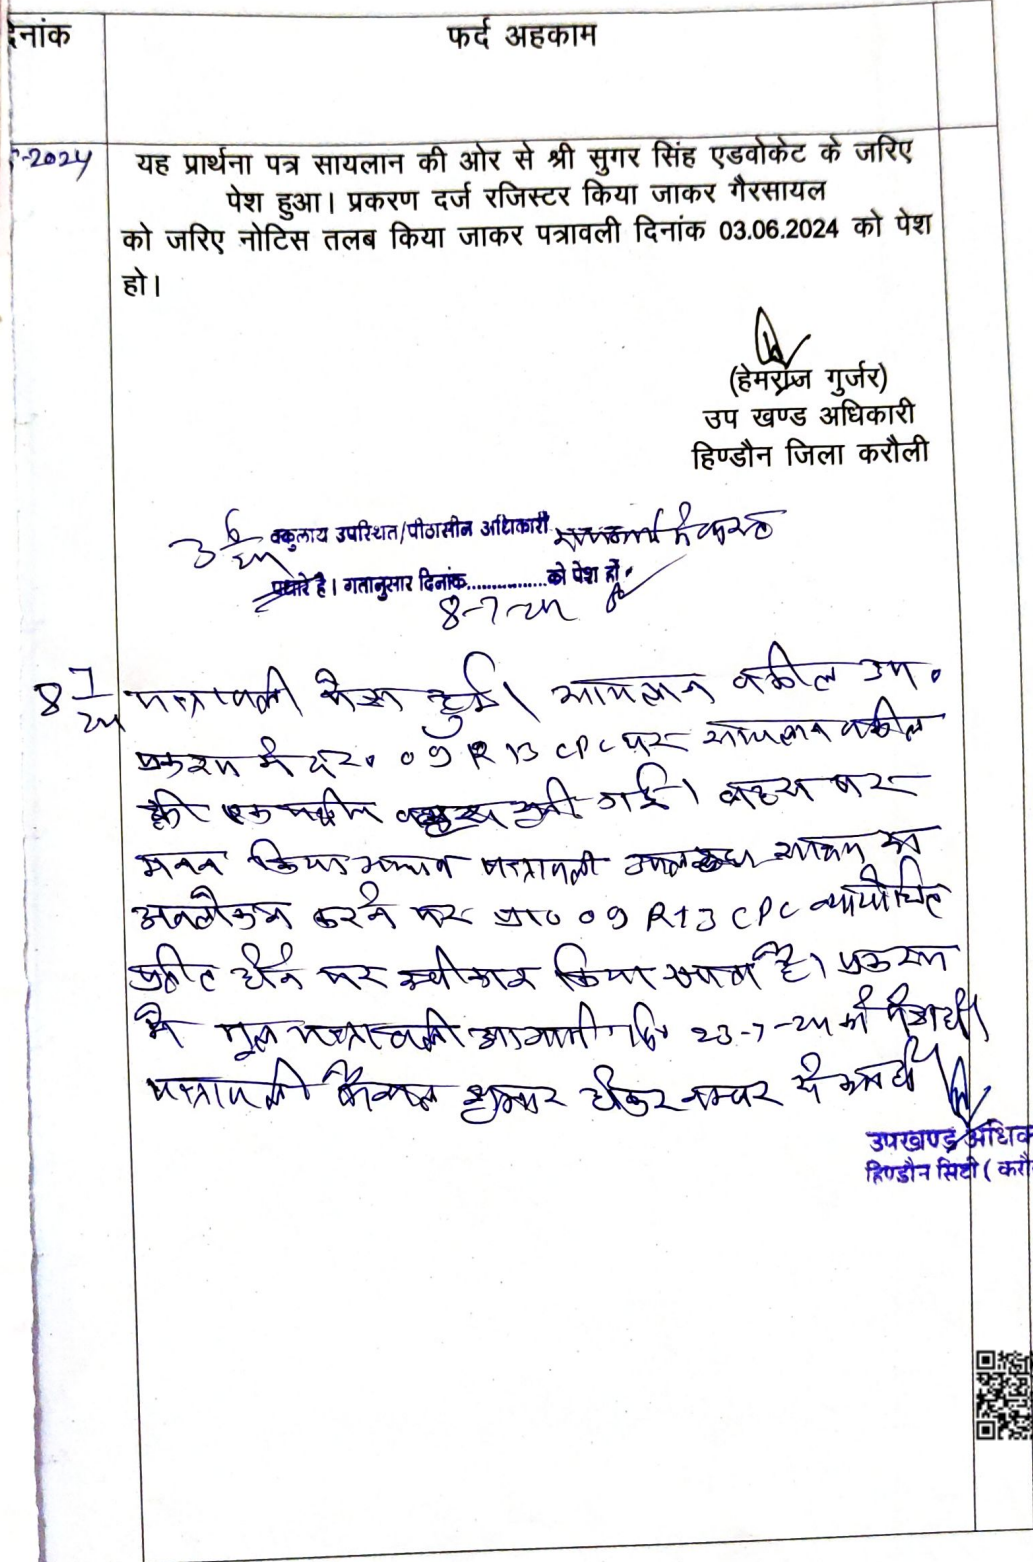 देनांक
फर्द अहकाम
-2024
यह प्रार्थना पत्र सायलान की ओर से श्री सुगर सिंह एडवोकेट के जरिए
पेश हुआ। प्रकरण दर्ज रजिस्टर किया जाकर गैरसायल
को जरिए नोटिस तलब किया जाकर पत्रावली दिनांक 03.06.2024 को पेश
हो।
(हेमराज गुर्जर)
उप खण्ड अधिकारी
हिण्डौन जिला करौली
3/6/24 वकुलाय उपस्थित/पीठासीन अधिकारी
पधारे है। गतानुसार दिनांक...............को पेश हो।
8-7-24
8/7/24 पत्रावली पेश हुई। सायलान वकील उप.
प्रकरण में 09 R 13 CPC पर सायलान वकील
की एक पक्षीय बहस सुनी गई। बहस पर
मनन किया गया व पत्रावली उपलब्ध साक्ष्य का
अवलोकन करने पर प्रा० 09 R13 CPC न्यायोचित
प्रतीत होने पर स्वीकार किया जाता है। प्रकरण
में मूल पत्रावली आगामी दि 23-7-24 को पेश हो।
पत्रावली फैसल शुमार होकर नम्बर से कम हो
उपखण्ड अधिक
हिण्डौन सिटी (करौ